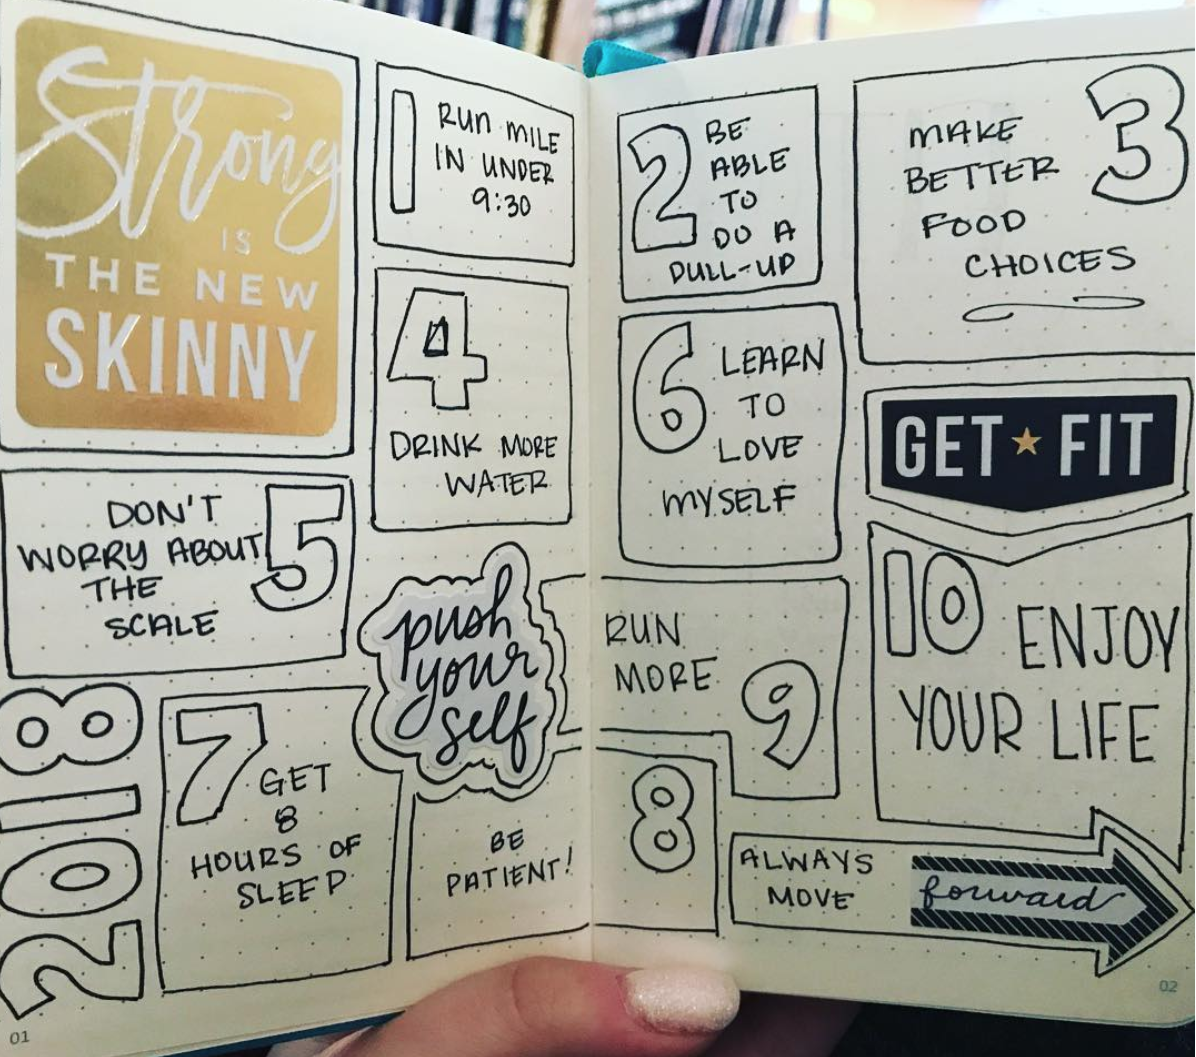 Strong
IS
THE NEW
SKINNY
1
RUN MILE
IN UNDER
9:30
2
BE
ABLE
TO
DO A
PULL-UP
3
MAKE
BETTER
FOOD
CHOICES
4
DRINK MORE
WATER
5
DON'T
WORRY ABOUT
THE
SCALE
6
LEARN
TO
LOVE
MYSELF
GET★FIT
push
your
self
2018
7
GET
8
HOURS OF
SLEEP
BE
PATIENT!
8
RUN
MORE
9
10
ENJOY
YOUR LIFE
ALWAYS
MOVE
forward
01
02